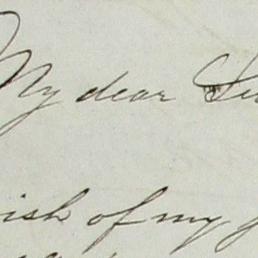 My dear
ish of my